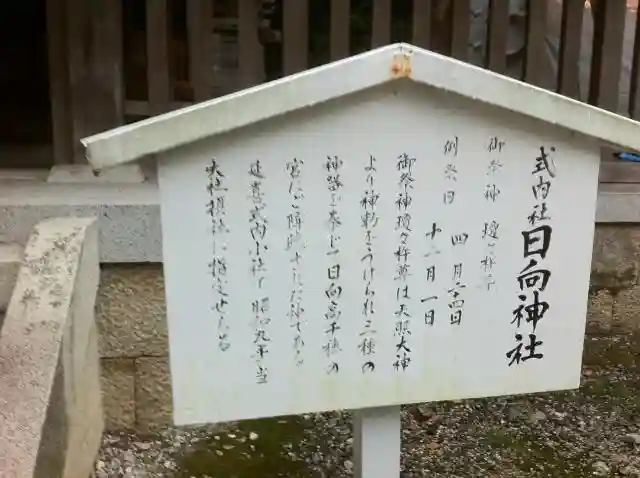 式内社日向神社
御祭神 瓊々杵尊
例祭日 四月二十四日
十一月一日
御祭神瓊々杵尊は天照大神
より神勅をうけられ三種の
神器を奉じて日向高千穂の
宮に御降臨された神である
延喜式内小社で昭和九年当
大社摂社に指定せらる